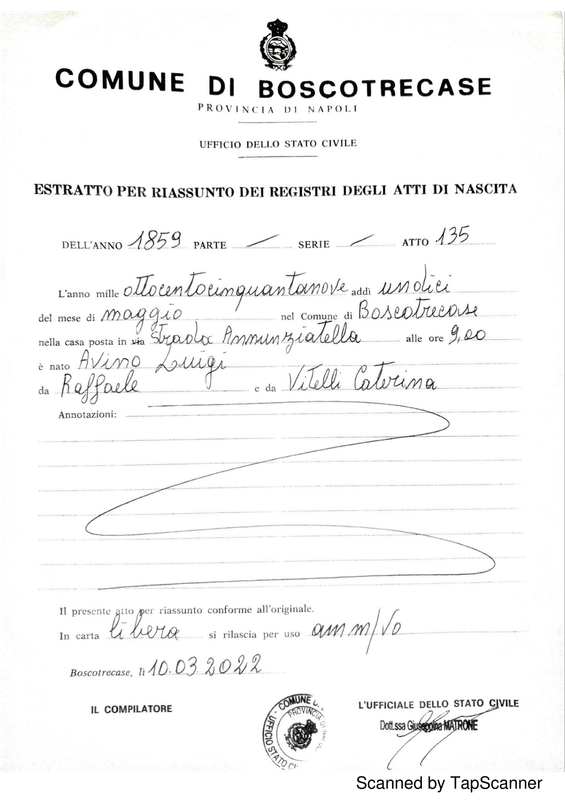 COMUNE DI BOSCOTRECASE
PROVINCIA DI NAPOLI
UFFICIO DELLO STATO CIVILE
ESTRATTO PER RIASSUNTO DEI REGISTRI DEGLI ATTI DI NASCITA
DELL'ANNO 1859 PARTE / SERIE / ATTO 135
L'anno mille ottocentocinquantanove addì undici
del mese di maggio nel Comune di Boscotrecase
nella casa posta in via Strada Annunziatella alle ore 9,00
è nato Avino Luigi
da Raffaele e da Vitelli Caterina
Annotazioni:
Il presente atto per riassunto conforme all'originale.
In carta libera si rilascia per uso amm/vo
Boscotrecase, lì 10.03.2022
IL COMPILATORE
L'UFFICIALE DELLO STATO CIVILE
Dott.ssa Giuseppina MATRONE
COMUNE DI
PROVINCIA DI
UFFICIO STATO
Scanned by TapScanner